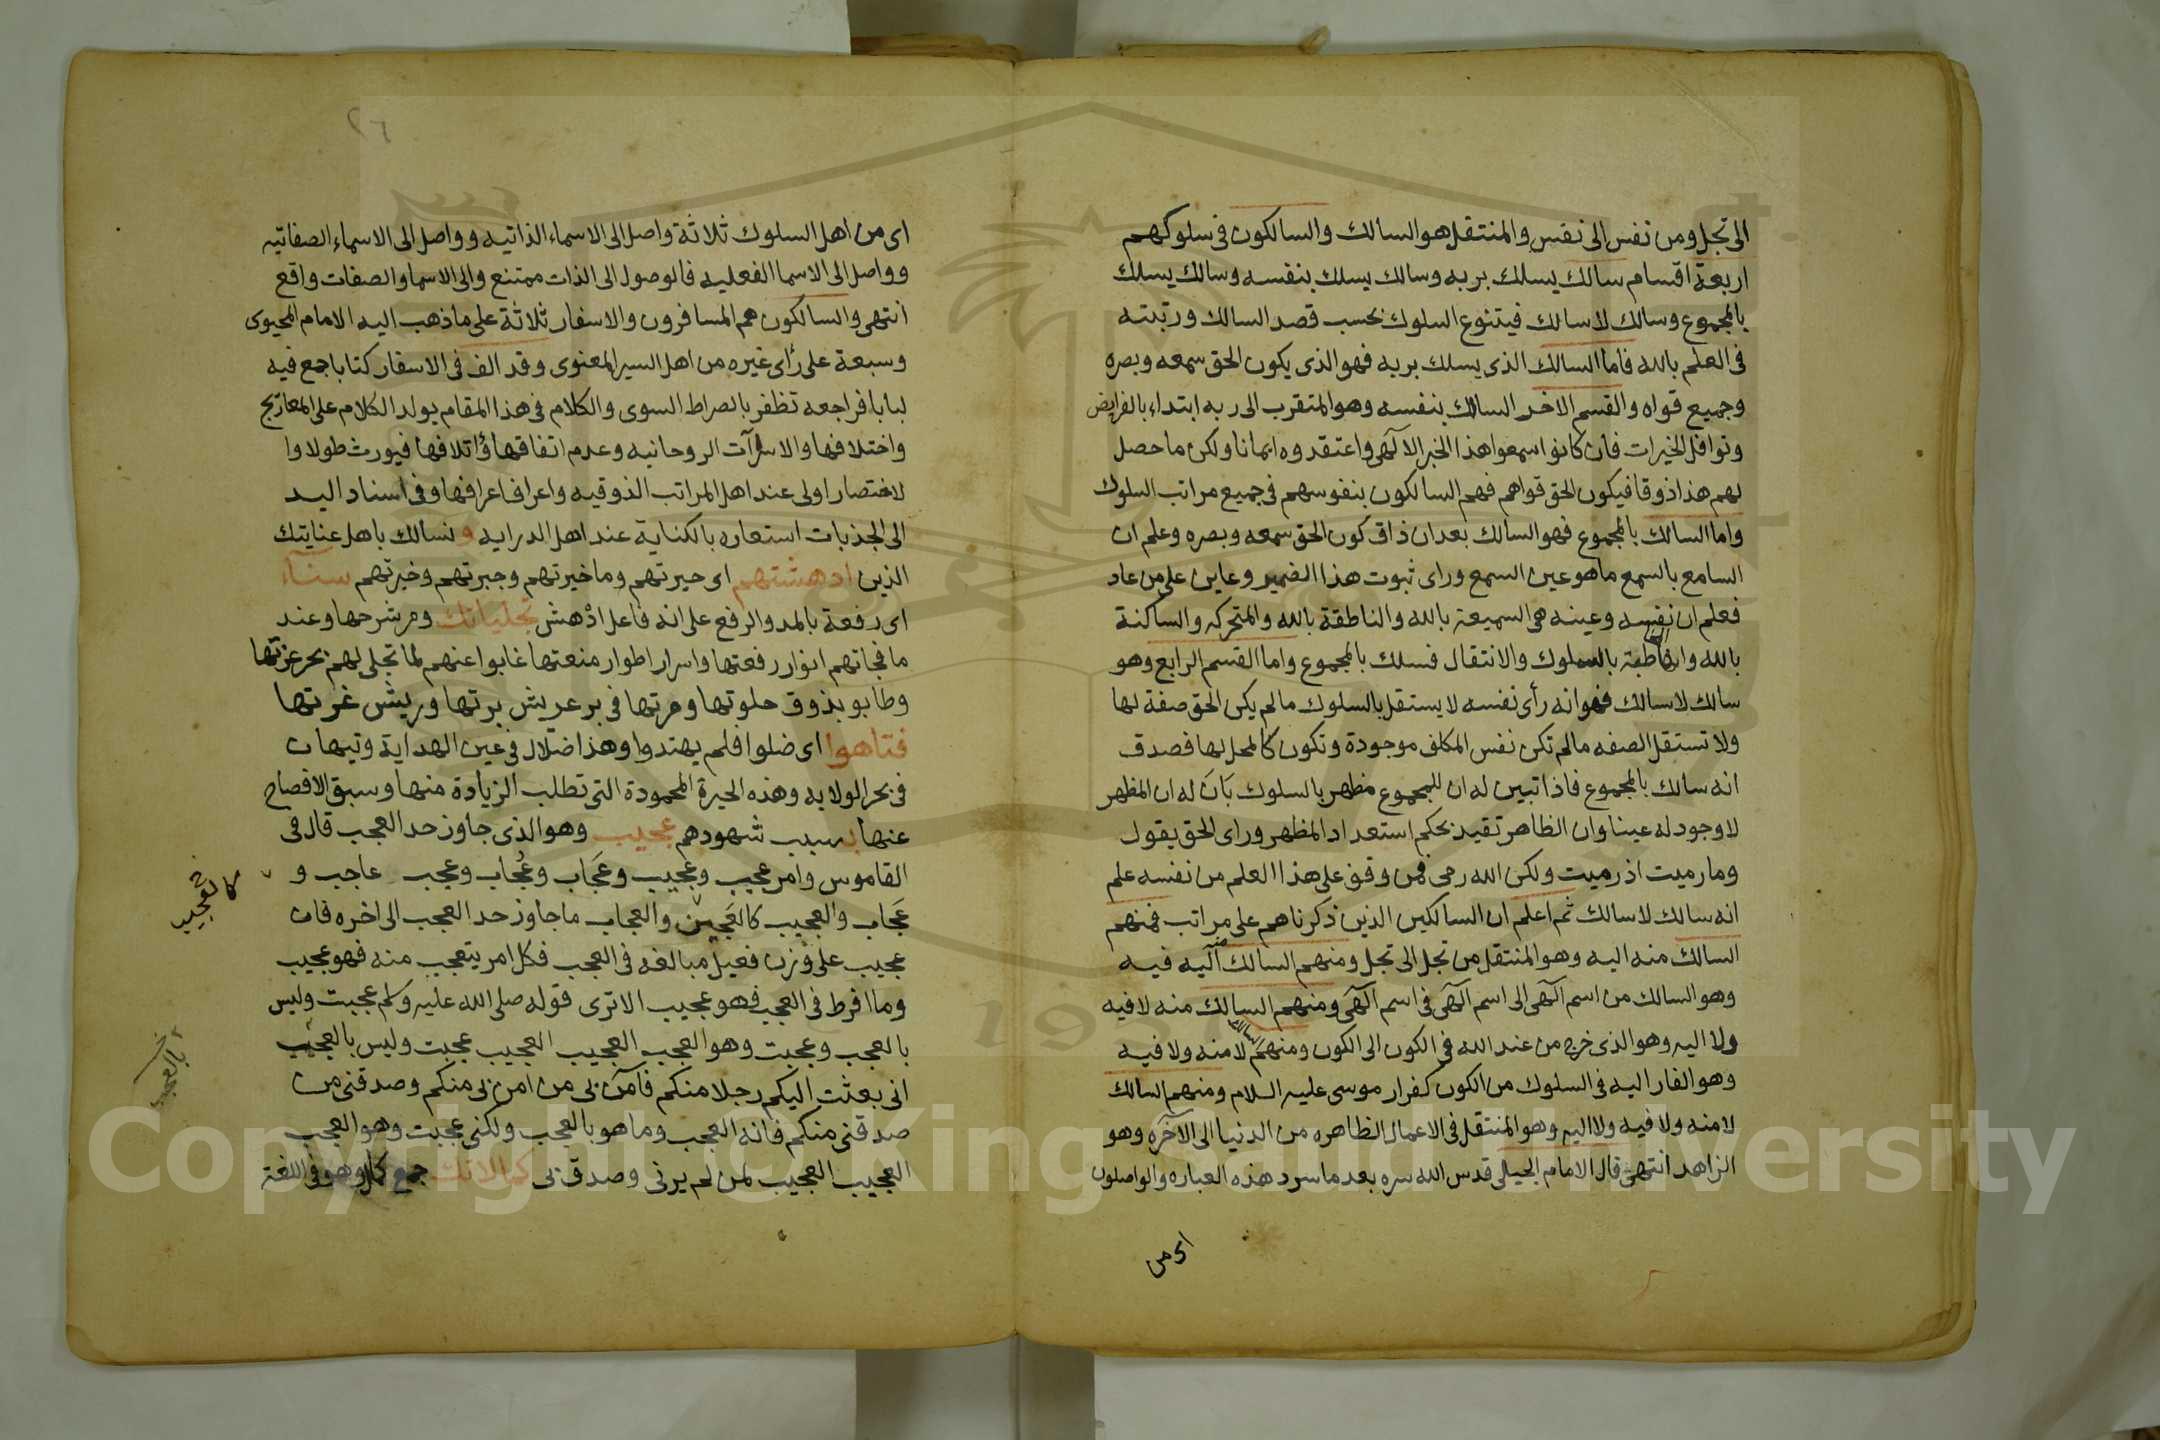 الى تجل ومن نفس الى نفس والمنتقل هو السالك والسالكون فى سلوكهم
اربعة اقسام سالك يسلك بربه وسالك يسلك بنفسه وسالك يسلك
بالمجموع وسالك لاسالك فيتنوع السلوك بحسب قصد السالك ورتبته
فى العلم بالله فاما السالك الذى يسلك بربه فهو الذى يكون الحق سمعه وبصره
وجميع قواه والقسم الاخر السالك بنفسه وهو المتقرب الى ربه ابتداء بالفرايض
ونوافل الخيرات فان كانوا سمعوا هذا الخبر الالهى واعتقدوه ايمانا ولكن ما حصل
لهم هذا ذوقا فيكون الحق قواهم فهم السالكون بنفوسهم فى جميع مراتب السلوك
واما السالك بالمجموع فهو السالك بعد ان ذاق كون الحق سمعه وبصره وعلم ان
السامع بالسمع ما هو عين السمع وراى ثبوت هذا الضمير وعاين على من عاد
فعلم ان نفسه وعينه هى السميعة بالله والناطقة بالله والمتحركه والساكنة
بالله والمخاطبة بالسلوك والانتقال فسلك بالمجموع واما القسم الرابع وهو
سالك لاسالك فهو انه رأى نفسه لا يستقل بالسلوك ما لم يكن الحق صفة لها
ولا تستقل الصفه ما لم تكن نفس المكلف موجودة وتكون كالمحل لها فصدق
انه سالك بالمجموع فاذا تبين له ان للمجموع مظهر بالسلوك بَانَ له ان المظهر
لا وجود له عينا وان الظاهر تقيد بحكم استعداد المظهر وراى الحق يقول
وما رميت اذ رميت ولكن الله رمى فمن وقف على هذا العلم من نفسه علم
انه سالك لاسالك ثم اعلم ان السالكين الذين ذكرناهم على مراتب فمنهم
السالك منه اليه وهو المنتقل من تجل الى تجل ومنهم السالك منه اليه فيه
وهو السالك من اسم الهى الى اسم الهى فى اسم الهى ومنهم السالك منه لا فيه
ولا اليه وهو الذى خرج من عند الله فى الكون الى الكون ومنهم السالك لا منه ولا فيه
وهو الفار اليه فى السلوك من الكون كفرار موسى عليه السلام ومنهم السالك
لا منه ولا فيه ولا اليه وهو المنتقل فى الاعمال الظاهره من الدنيا الى الآخره وهو
الزاهد انتهى قال الامام الجيلى قدس الله سره بعد ما سرد هذه العباره والواصلون
اى من
٢٦
اى من اهل السلوك ثلاثة واصل الى الاسماء الذاتيه وواصل الى الاسماء الصفاتيه
وواصل الى الاسما الفعليه فالوصول الى الذات ممتنع والى الاسما والصفات واقع
انتهى والسالكون هم المسافرون والاسفار ثلاثة على ما ذهب اليه الامام المحيوى
وسبعة على رأى غيره من اهل السير المعنوى وقد الف فى الاسفار كتابا جمع فيه
لبابا فراجعه تظفر بالصراط السوى والكلام فى هذا المقام يولد الكلام على المعارج
واختلافها والاسرآت الروحانيه وعدم اتفاقها وائتلافها فيورث طولا وا
لاختصار اولى عند اهل المراتب الذوقيه واعراف اعرافها وفى اسناد اليد
الى الجذبات استعاره بالكناية عند اهل الدرايه ونسالك باهل عنايتك
الذين ادهشتهم اى حيرتهم وما خيرتهم وجبرتهم وخبرتهم سناء
اى رفعة بالمد والرفع على انه فاعل ادْهش تجلياتك ومر شرحها وعند
ما فجاتهم انوار رفعتها واسرار اطوار منعتها غابوا عنهم لما تجلى لهم بحر عزتها
وطابو بذوق حلوتها ومرتها فى بر عريش برتها وريش غرتها
فتاهوا اى ضلوا فلم يهتدوا وهذا ضلال فى عين الهداية وتيهان
فى بحر الولايه وهذه الحيرة المحمودة التى تطلب الزيادة منها وسبق الافصاح
عنها بسبب شهودهم عجيب وهو الذى جاوز حد العجب قال فى
القاموس وامر عجب وعجيب وعَجَاب وعُجاب وعجب عاجب و
عَجَاب والعجيب كالعجب والعجاب ما جاوز حد العجب الى اخره فان
كالعجيب
عجيب على وزن فعيل مبالغه فى العجب فكل امر يتعجب منه فهو عجيب
وما افرط فى العجب فهو عجيب الا ترى قوله صلى الله عليه وسلم عجبت وليس
بالعجب وعجبت وهو العجب العجيب العجيب عجبت وليس بالعجب
بالعجب
انى بعثت اليكم رجلا منكم فآمن بى من امن بى منكم وصدقنى من
صدقنى منكم فانه العجب وما هو بالعجب ولكنى عجبت وهو العجب
العجيب العجيب لمن لم يرنى وصدق بى كمالاتك جمع كمال وهو فى اللغة
Copyright © King Saud University